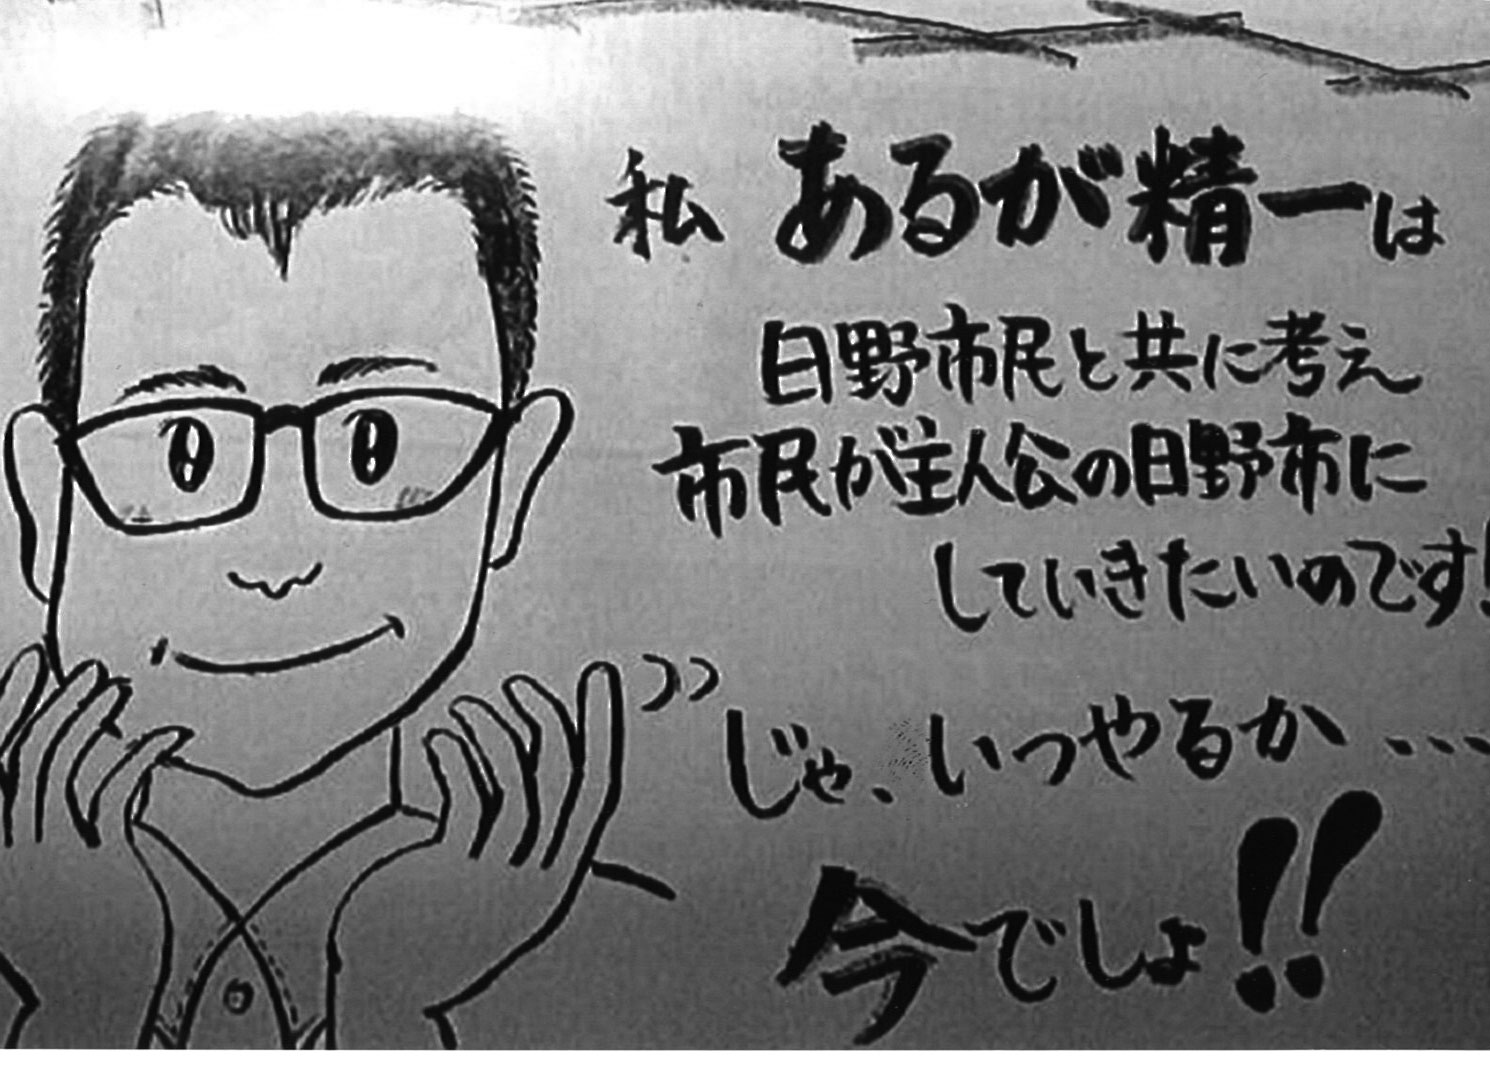 私 あるが精一は
日野市民と共に考え
市民が主人公の日野市に
していきたいのです!
じゃ、いつやるか…
今でしょ!!